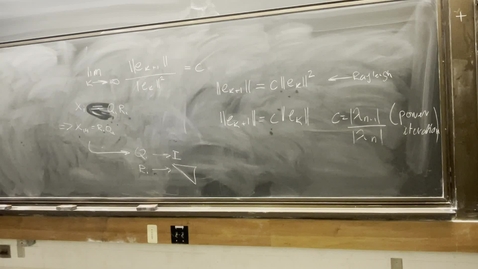 lim k→∞ ||e_{k+1}|| / ||e_k||^2 = C
||e_{k+1}|| = C||e_k||^2 ← Rayleigh
||e_{k+1}|| = C||e_k|| C = |λ_{n-1}| / |λ_n| (power iteration)
Q → I
R_i →